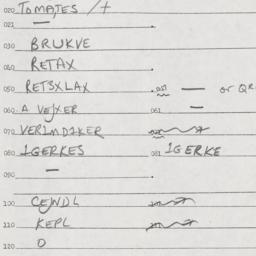 020 TOMATES /t
021 —
030 BRUKVE
040 RETAX
050 RETSXLAX 051 — or QR
060 A VEJXER 061 —
070 VERLMD1KER
080 1GERKES 081 1GERKE
090 —
100 CEJNDL
110 KEPL
120 O